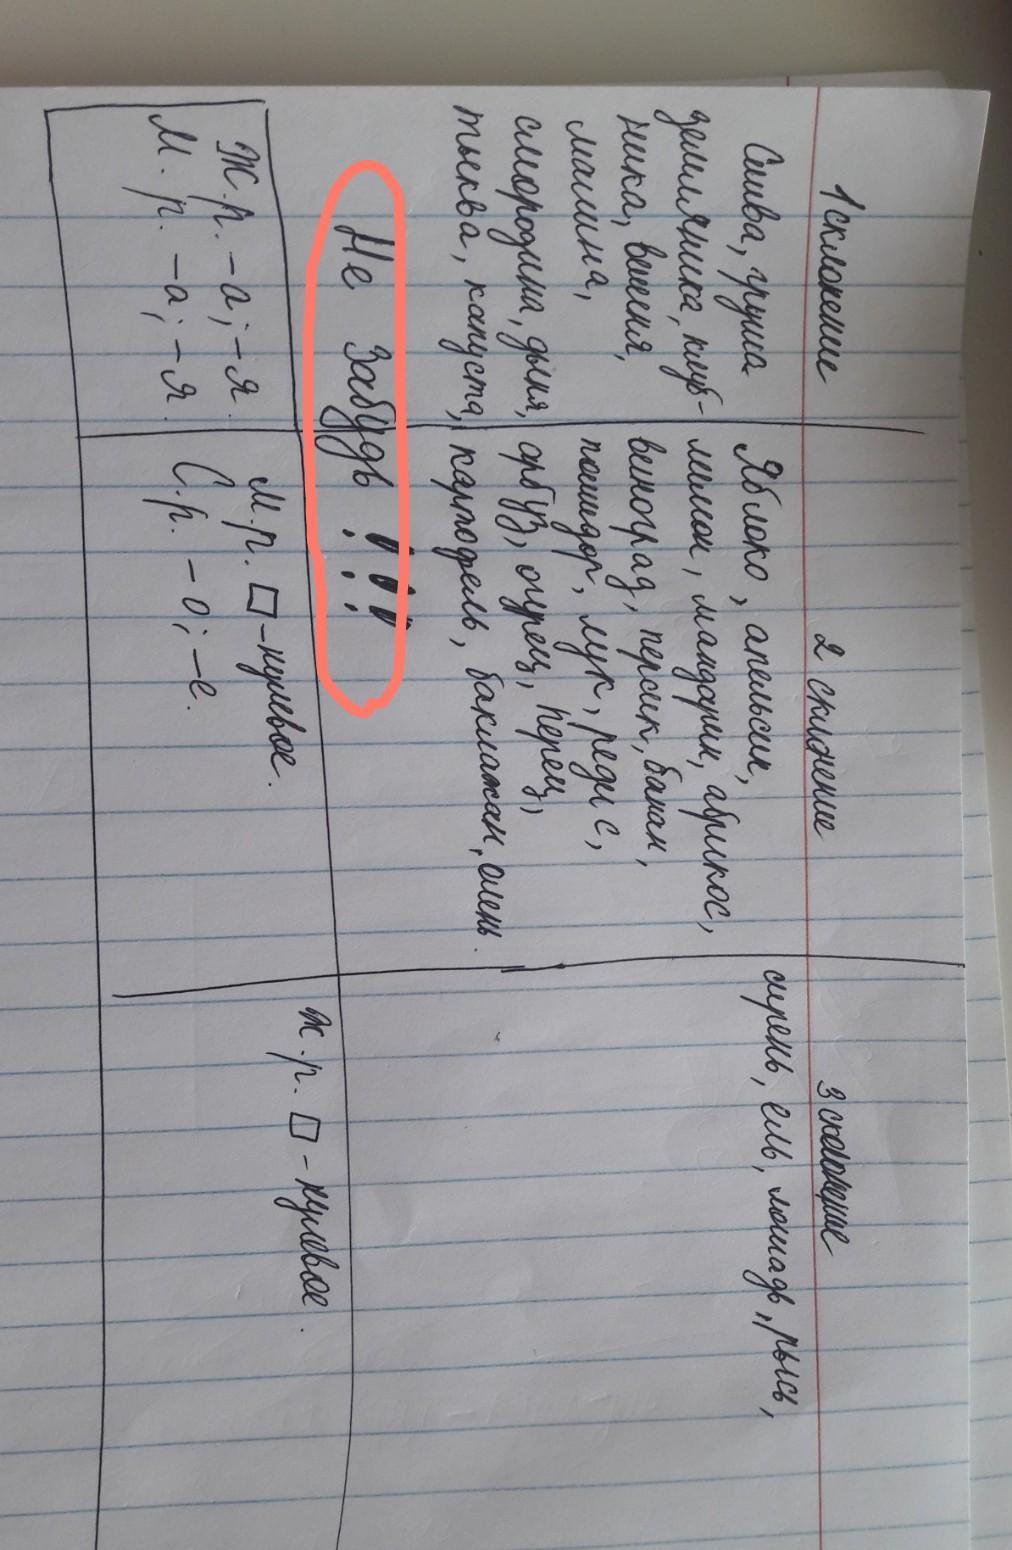 1 склонение
Слива, груша
земляника, клуб-
ника, вишня,
малина,
смородина, дыня,
тыква, капуста,
2 склонение
Яблоко, апельсин,
лимон, мандарин, абрикос,
виноград, персик, банан,
помидор, лук, редис,
арбуз, огурец, перец,
картофель, баклажан, олень.
3 склонение
сирень, ель, лошадь, рысь,
Не забудь!!!
Ж.р. -а; -я.
М.р. -а; -я.
М.р. □ -нулевое.
С.р. -о; -е.
Ж.р. □ -нулевое.